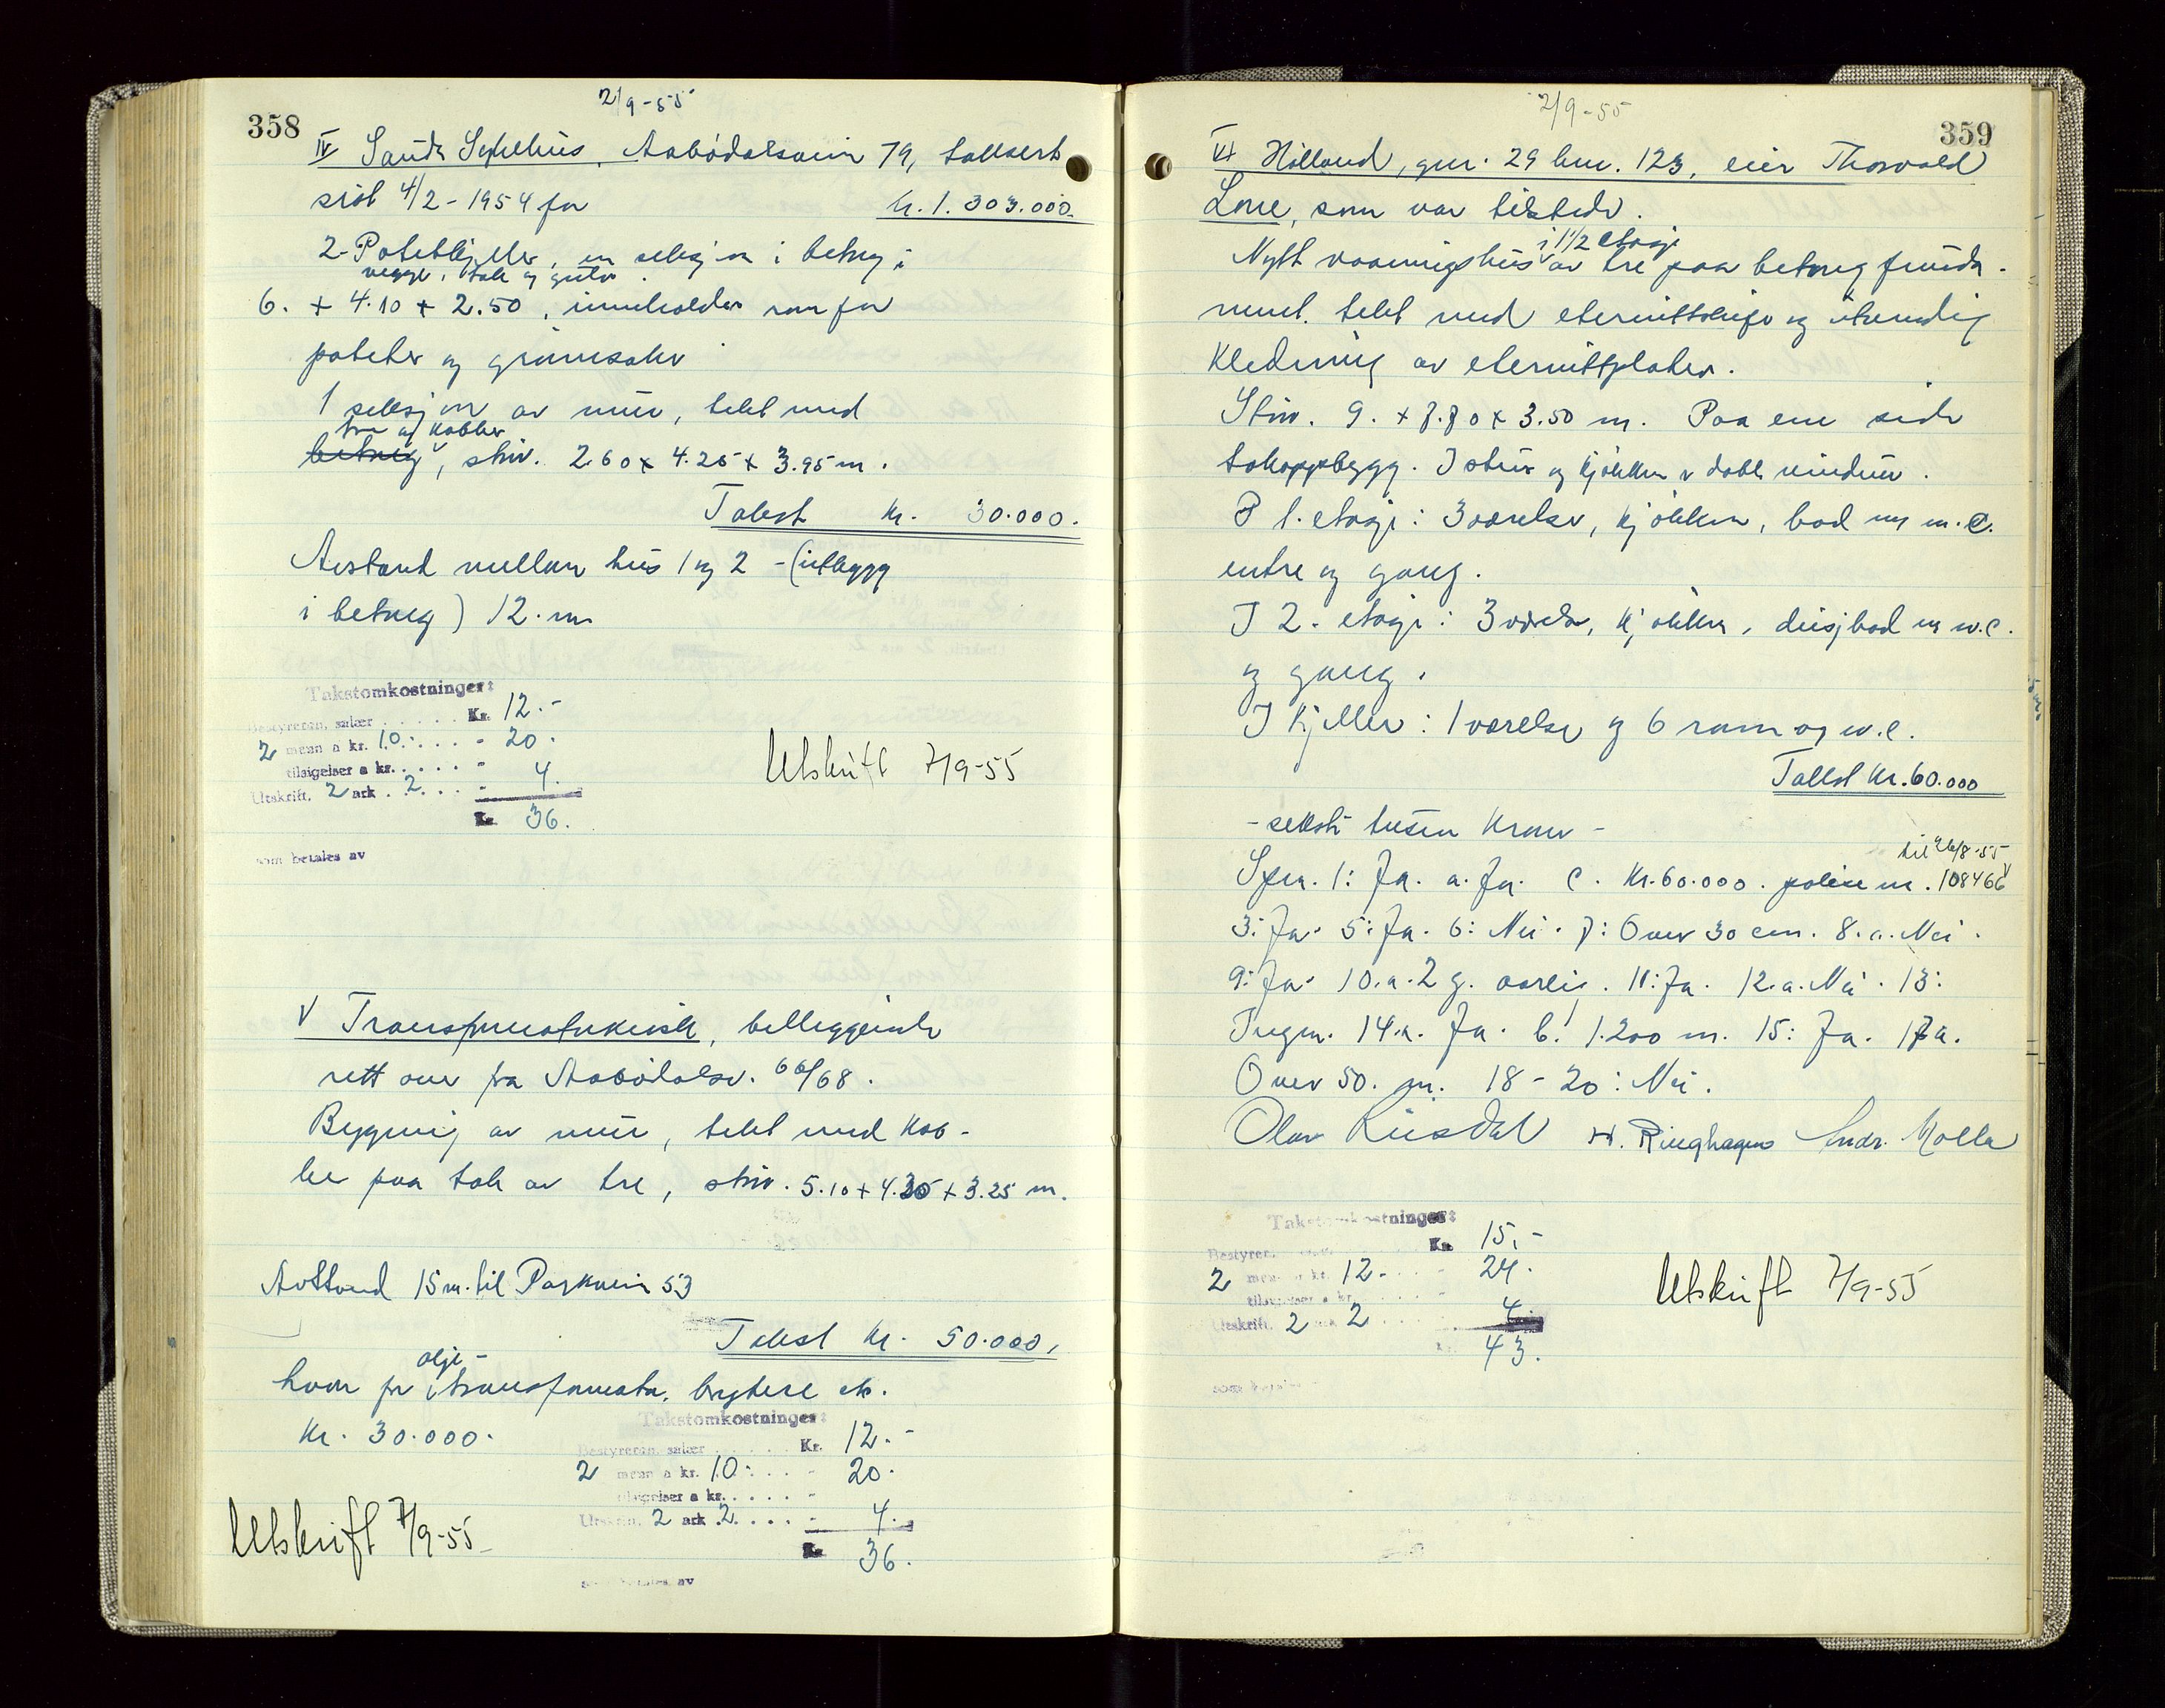 2/9-55
358
IV Sauda Sykehus, Aabødalsveien 79, taksert
sist 4/2-1954 for Kr. 1.303.000.-
2- Potetkjeller, en seksjon i betong i
vegger, tak og gulv.
6. + 4.10 + 2.50, inneholder rom for
poteter og grønnsaker
1 seksjon av mur, tekt med
tre og kobber
betong, stør. 2.60 x 4.25 x 3.95 m.
Takst Kr. 30.000.
Avstand mellom hus 1 og 2 - (utbygg
i betong) 12. m
Takstomkostninger:
Bestyreren, salær . . . . . Kr. 12.-
2 menn a kr. 10.- . . . - 20.
tilsigelser a kr. . . . . -
Utskrift, 2 ark . 2. . . . - 4.
Kr. 36.
som betales av
Utskrift 7/9-55
V Transformatorkiosk, beliggende
rett over fra Aabødalsv. 66/68.
Bygning av mur, tekt med kob-
ber paa tak av tre, stør. 5.10 + 4.35 + 3.25 m.
Avstand 15 m. til Parkvein 53
Takst Kr. 50.000,
olje-
hvor for transformator, brytere etc.
Kr. 30.000.
Takstomkostninger:
Bestyreren, salær . . . . . Kr. 12.-
2 menn a kr. 10.- . . - 20.
tilsigelser a kr. . . . . -
Utskrift, 2 ark . 2. . . . - 4.
Kr. 36.
som betales av
Utskrift 7/9-55
2/9-55
359
VI Hølland, gnr. 29 bnr. 123, eier Thorvald
Lone, som var tilstede.
i 1 1/2 etasje
Nytt vaaningshus av tre paa betong funda-
ment. tekt med eternittskifer og utvendig
kledning av eternittplater.
Stør. 9. + 7.70 x 3.50 m. Paa ene side
takoppbygg. I stue og kjøkken v dobl. vinduer.
I 1. etasje: 3 værelser, kjøkken, bad og w.c.
entre og gang.
I 2. etasje: 3 værelser, kjøkken, dusjbad og w.c.
og gang.
I kjeller: 1 værelse og 6 rom og w.c.
Takst Kr. 60.000
- seksti tusen kroner -
til 26/8-55
Spm. 1: Ja. a. Ja. c. Kr. 60.000. polise nr. 108466
3: Ja. 5: Ja. 6: Nei. 7: Over 30 cm. 8. a. Nei.
9: Ja. 10. a. 2 g. aarlig. 11: Ja. 12. a. Nei. 13:
Ingen. 14. a. Ja. b. 1.200 m. 15: Ja. 17 a.
Over 50. m. 18 - 20: Nei.
Olav Risdal H. Ringhagen Andr. Molla
Takstomkostninger:
Bestyrer. Kr. 15,-
2 menn a kr. 12.- . . . - 24.
tilsigelser a kr. . . . -
Utskrift, 2 2 . . . . 4.
43.
som betales
Utskrift 7/9-55